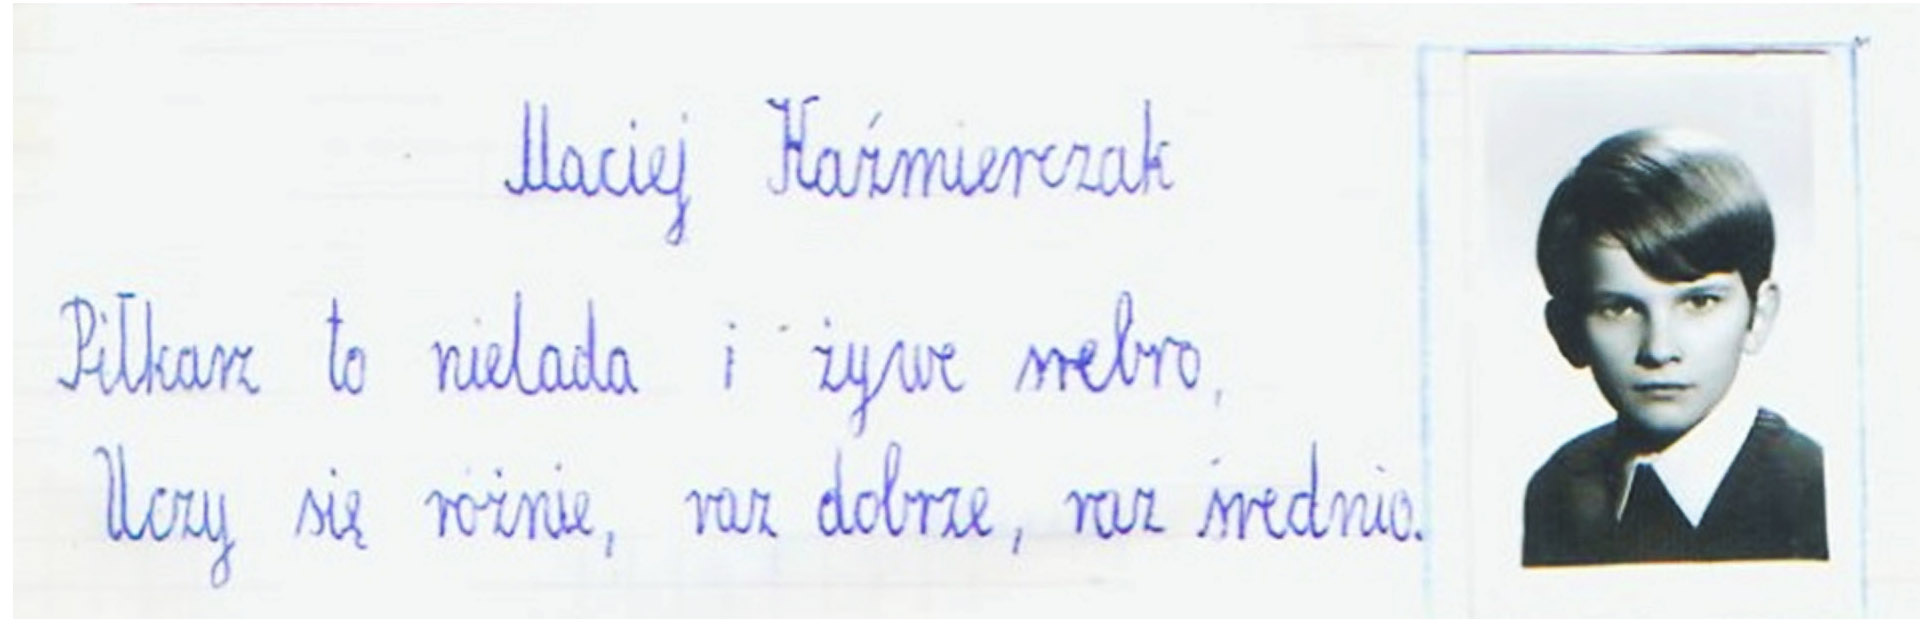 Maciej Kaźmierczak
Piłkarz to nielada i żywe srebro,
Uczy się różnie, raz dobrze, raz średnio.